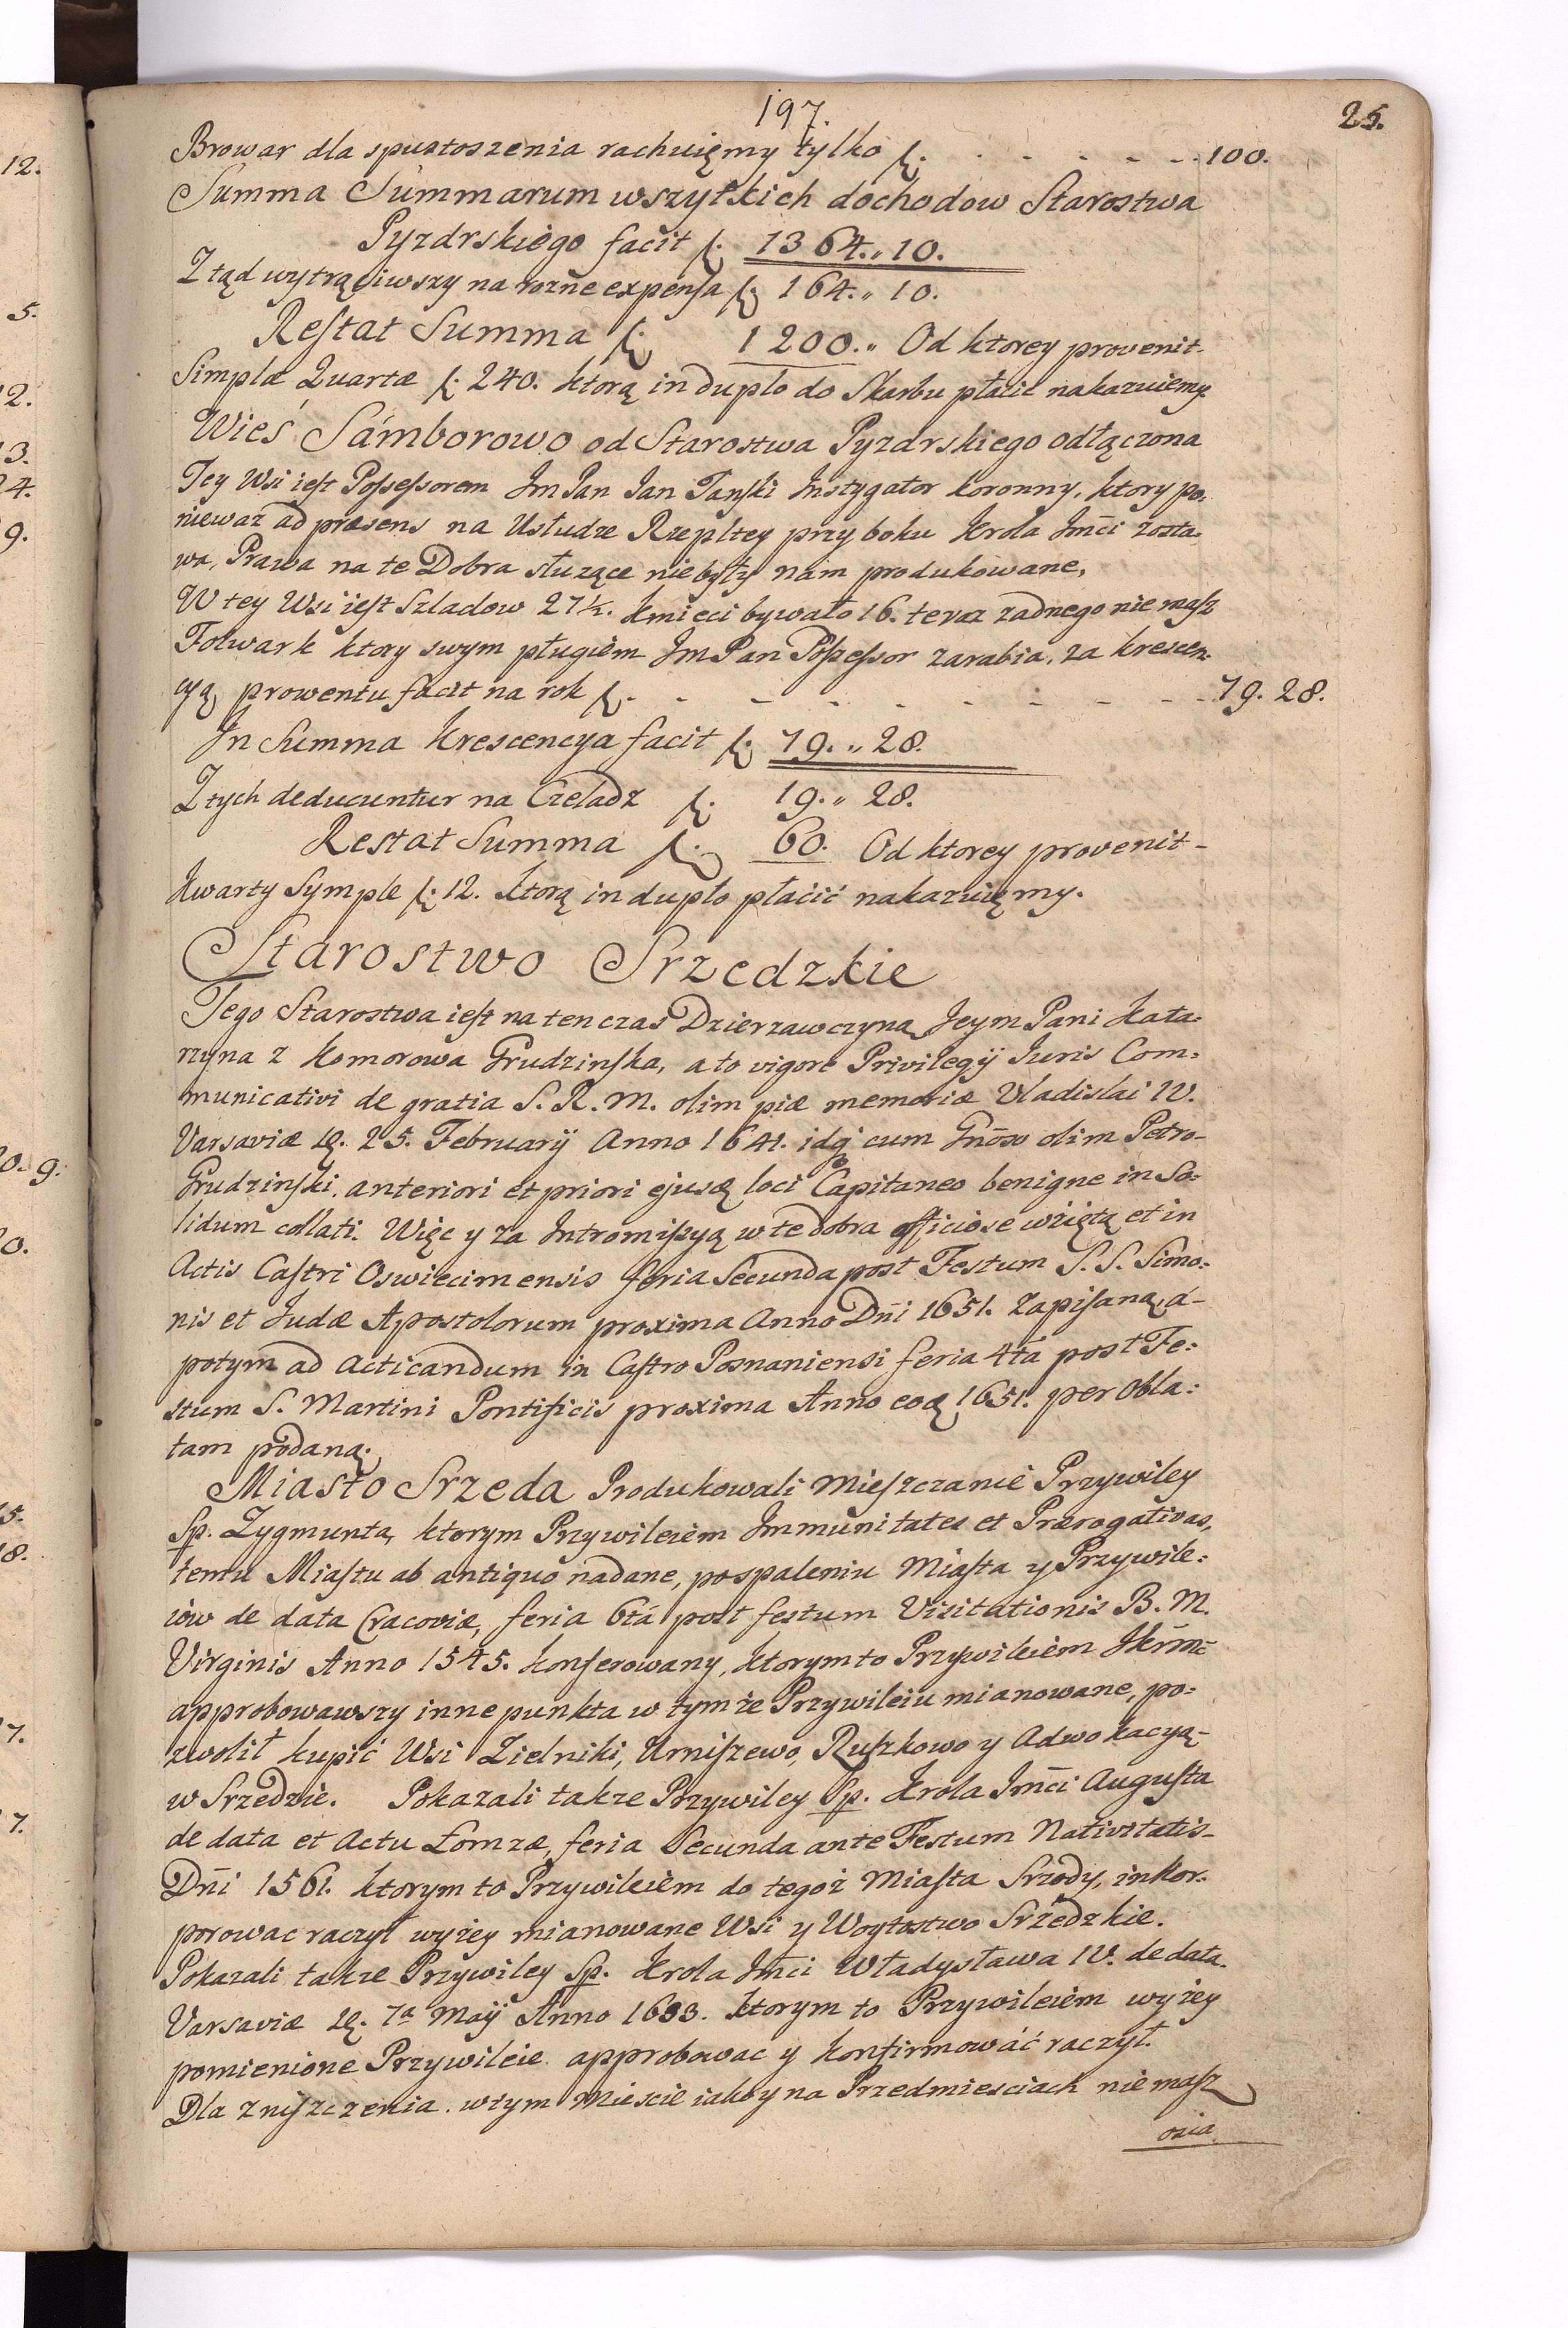 197.
25.
Browar dla spustoszenia rachuięmy tylko f. - - - - - 100.
Summa Summarum wszytkich dochodow Starostwa
Pyzdrskiego facit f. 1364.„10.
Ztąd wytrąciwszy na rozne expensa f. 164.„10.
Restat Summa f. 1200.„ Od ktorey provenit-
Simplæ Quartæ f. 240. ktorą in duplo do Skarbu płacić nakazuiemy
Wieś Sámborowo od Starostwa Pyzdrskiego odłączona
Tey Wsi iest Possessorem Jm Pan Jan Tanski Instygator koronny, ktory po:
niewaz ad præsens na Usłudze Rzepltey przy boku Krola Jmci zosta.
wa, Prawa na te Dobra słuzące nie były nam produkowane,
W tey Wsi iest Szladow 27½. kmieci bywało 16. teraz zadnego nie masz
Folwark ktory swym pługiem Jm Pan Possessor zarabia, za krescen:
cyą prowentu facit na rok f. - - - - - - - - 79. 28.
In Summa Krescencya facit f. 79.„28.
Z tych deducuntur na Czeladz f. 19.„28.
Restat Summa f. 60. Od ktorey provenit-
Kwarty Symple f. 12. ktorą in duplo płacić nakazuięmy.
Starostwo Srzedzkie
Tego Starostwa iest na ten czas Dzierzawczyną Jeym Pani Kata:
rzyna z Komorowa Grudzinska, a to vigore Privilegÿ Iuris Com:
municativi de gratia S. R. M. olim piæ memoriæ Vladislai IV.
Varsaviæ 25. Februarÿ Anno 1641. idq cum Gnōso olim Petro-
Grudzinski, anteriori et priori ejusq loci Capitaneo benigne in So:
lidum collati. Więc y za Intromissyą w te dobra officiose wzięta et in
Actis Castri Oswiecimensis feria Secunda post Festum S. S. Simo:
nis et Judæ Apostolorum proxima Anno Dn̄i 1651. Zapisaną, á-
potym ad acticandum in Castro Posnaniensi feria 4tá post Fe:
stum S. Martini Pontificis proxima Anno eoq 1651. per Obla:
tam podaną.
Miasto Srzeda Produkowali Mieszczanie Przywiley
Sp. Zygmunta, ktorym Przywileiem Immunitates et Prærogativas,
temu Miastu ab antiquo nadane, po spaleniu Miasta y Przywile:
iow de data Cracoviæ, feria 6tá post festum Visitationis B. M.
Virginis Anno 1545. konferowany, ktorym to Przywileiem JKrm̄c
approbowawszy inne punkta w tymze Przywileiu mianowane, po:
zwolił kupić Wsi Zielniki, Urniszewo, Ruszkowo y Adwokacyą-
w Srzedzie. Pokazali takze Przywiley Sp. Krola Jm̄ci Augusta
de data et Actu Łomzæ, feria Secunda ante Festum Nativitatis-
Dn̄i 1561. ktorym to Przywileiem do tegoż Miasta Srzody, inkor:
porowac raczył wyżey mianowane Wsi y Woytostwo Srzedzkie.
Pokazali takze Przywiley Sp. Krola Jm̄ci Władysława IV. de data
Varsaviæ 7a Maÿ Anno 1633. ktorym to Przywileiem wyżey
pomienione Przywileie approbowac y konfirmowáć raczył.
Dla zniszczenia w tym Miescie iako y na Przedmiesciach nie masz
osia
12.
5.
12.
13.
24.
9.
20. 9.
20.
15.
18.
27.
27.